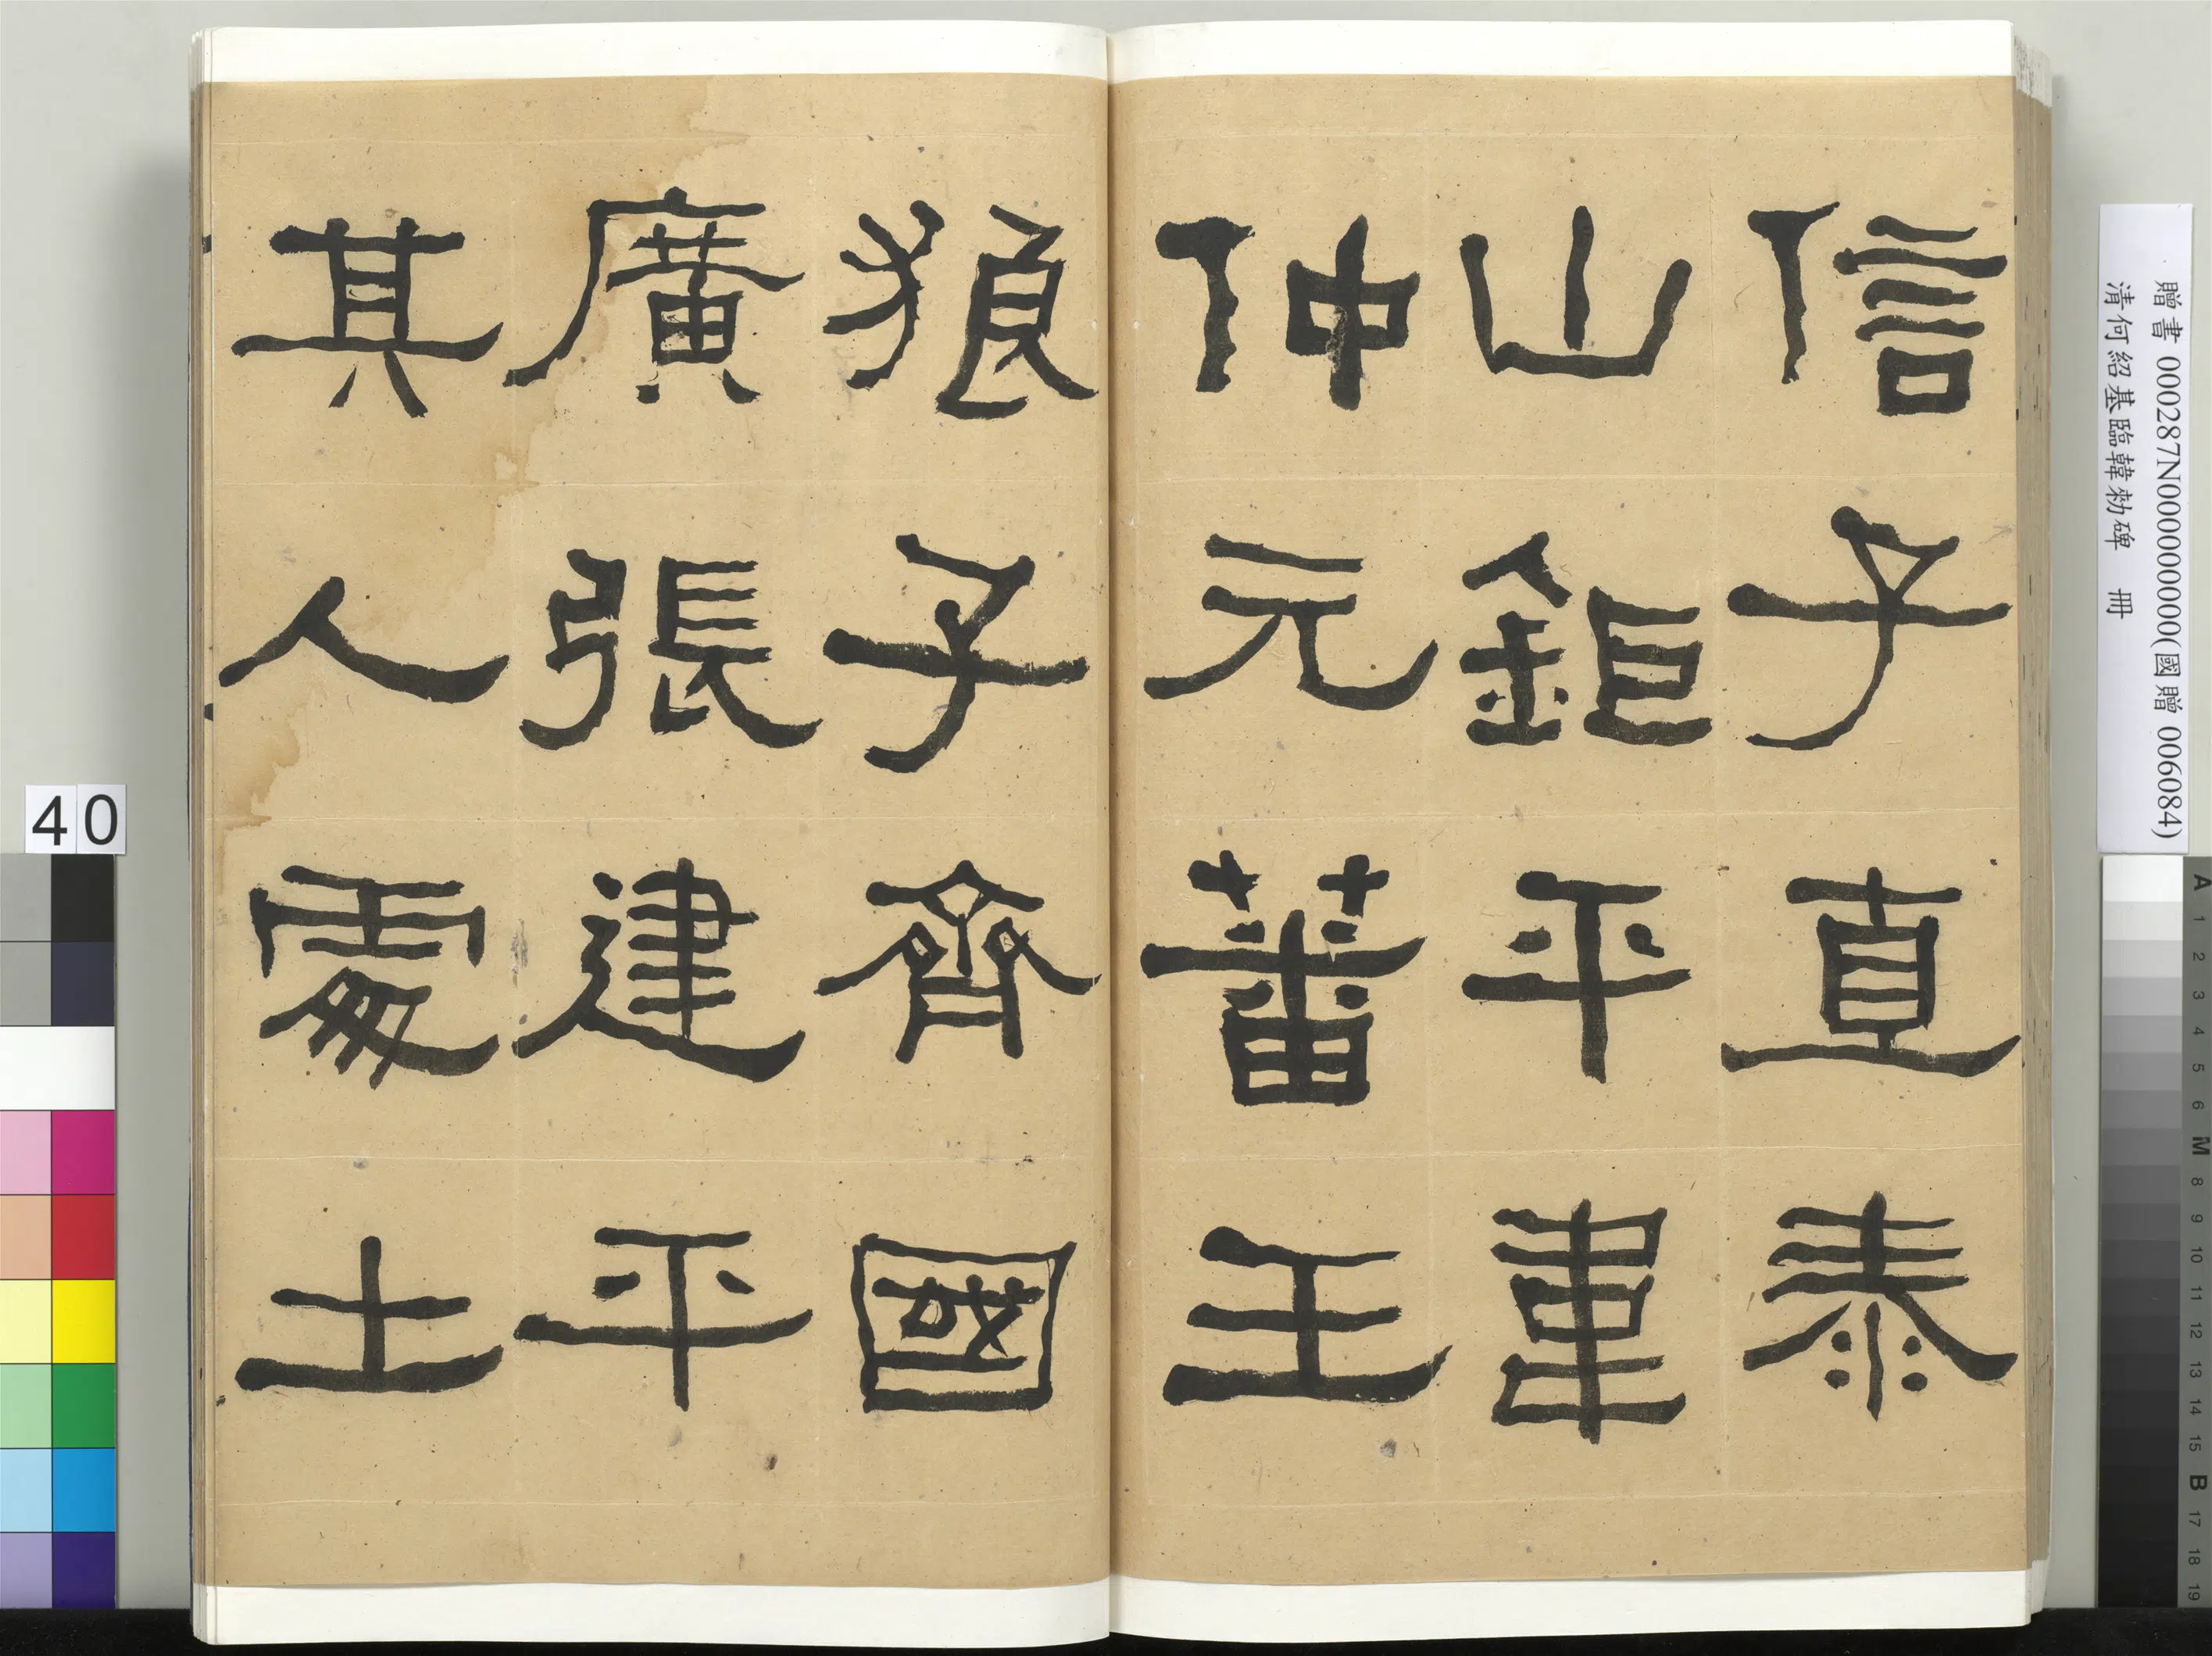 信子直泰
山鉅平韋
仲元蕃王
狼子齊國
廣張建平
其人處士
贈書 000287N000000000(國贈 006084)
清何紹基臨韓勑碑 冊
40
A 1 2 3 4 5 6 M 8 9 10 11 12 13 14 15 B 17 18 19